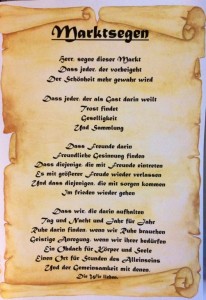 Marktsegen
Herr, segne dieser Markt
Dass jeder, der vorbeigeht
Der Schönheit mehr gewahr wird
Dass jeder, der als Gast darin weilt
Trost findet
Geselligkeit
Und Sammlung
Dass Freunde darin
Freundliche Gesinnung finden
Dass diejenige, die mit Freude eintreten
Es mit größerer Freude wieder verlassen
Und dass diejenigen, die mit sorgen kommen
Im frieden wieder gehen
Dass wir, die darin aufhalten
Tag und Nacht, die mit Jahr für Jahr
Ruhe darin finden, wenn wir Ruhe brauchen
Geistige Anregung, wenn wir ihrer bedürfen
Ein Obdach für Körper und Seele
Einen Ort für Stunden des Alleinseins
Und der Gemeinsamkeit mit denen,
Die wir lieben.